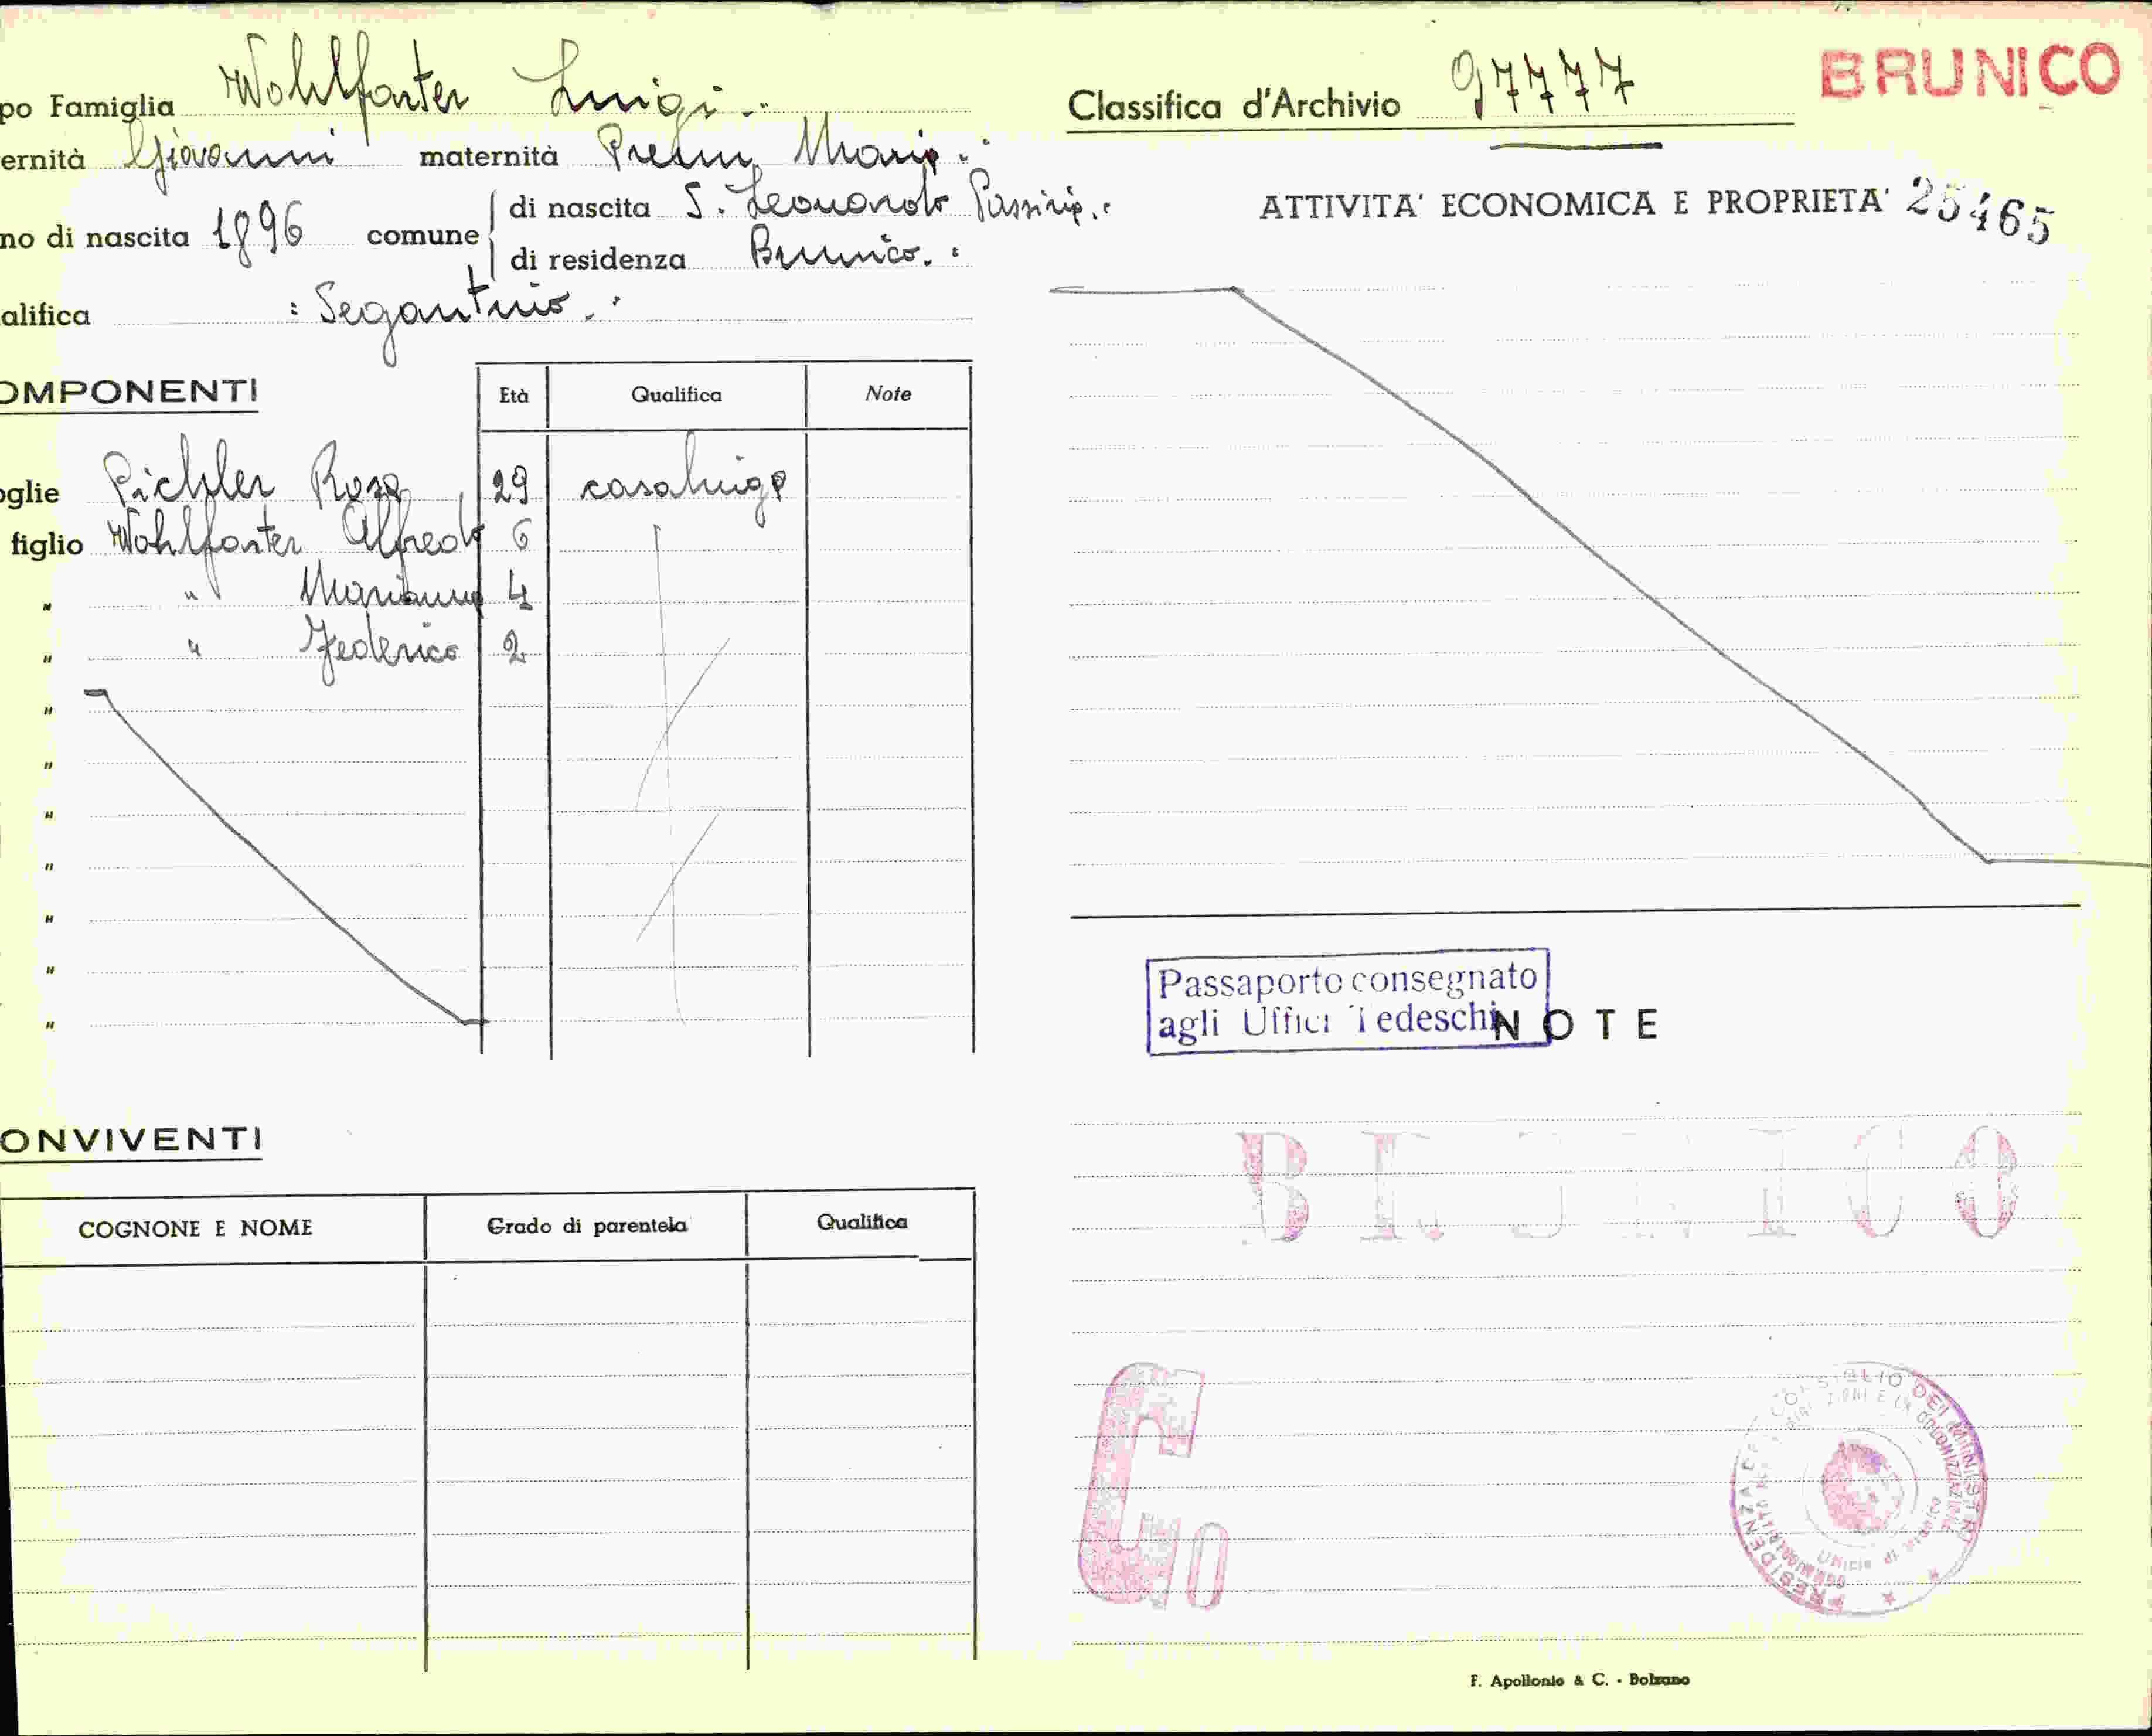 po Famiglia Wohlfarter Luigi
ernità Giovanni maternità Maria
no di nascita 1896 comune di nascita S. Leonardo Passiria
di residenza Brunico
alifica Segantino
OMPONENTI Età Qualifica Note
oglie Pichler Rosa 29 casalinga
figlio Wohlfarter Alfredo 6
" " Marianna 4
" " Federico 2
"
"
"
"
"
"
"
ONVIVENTI
COGNONE E NOME Grado di parentela Qualifica
BRUNICO
Classifica d'Archivio 97777
ATTIVITA' ECONOMICA E PROPRIETA' 25465
Passaporto consegnato
agli Uffici Tedeschi
NOTE
BRUNICO
PRESIDENZA DEL CONSIGLIO DEI MINISTRI
F. Apollonio & C. - Bolzano